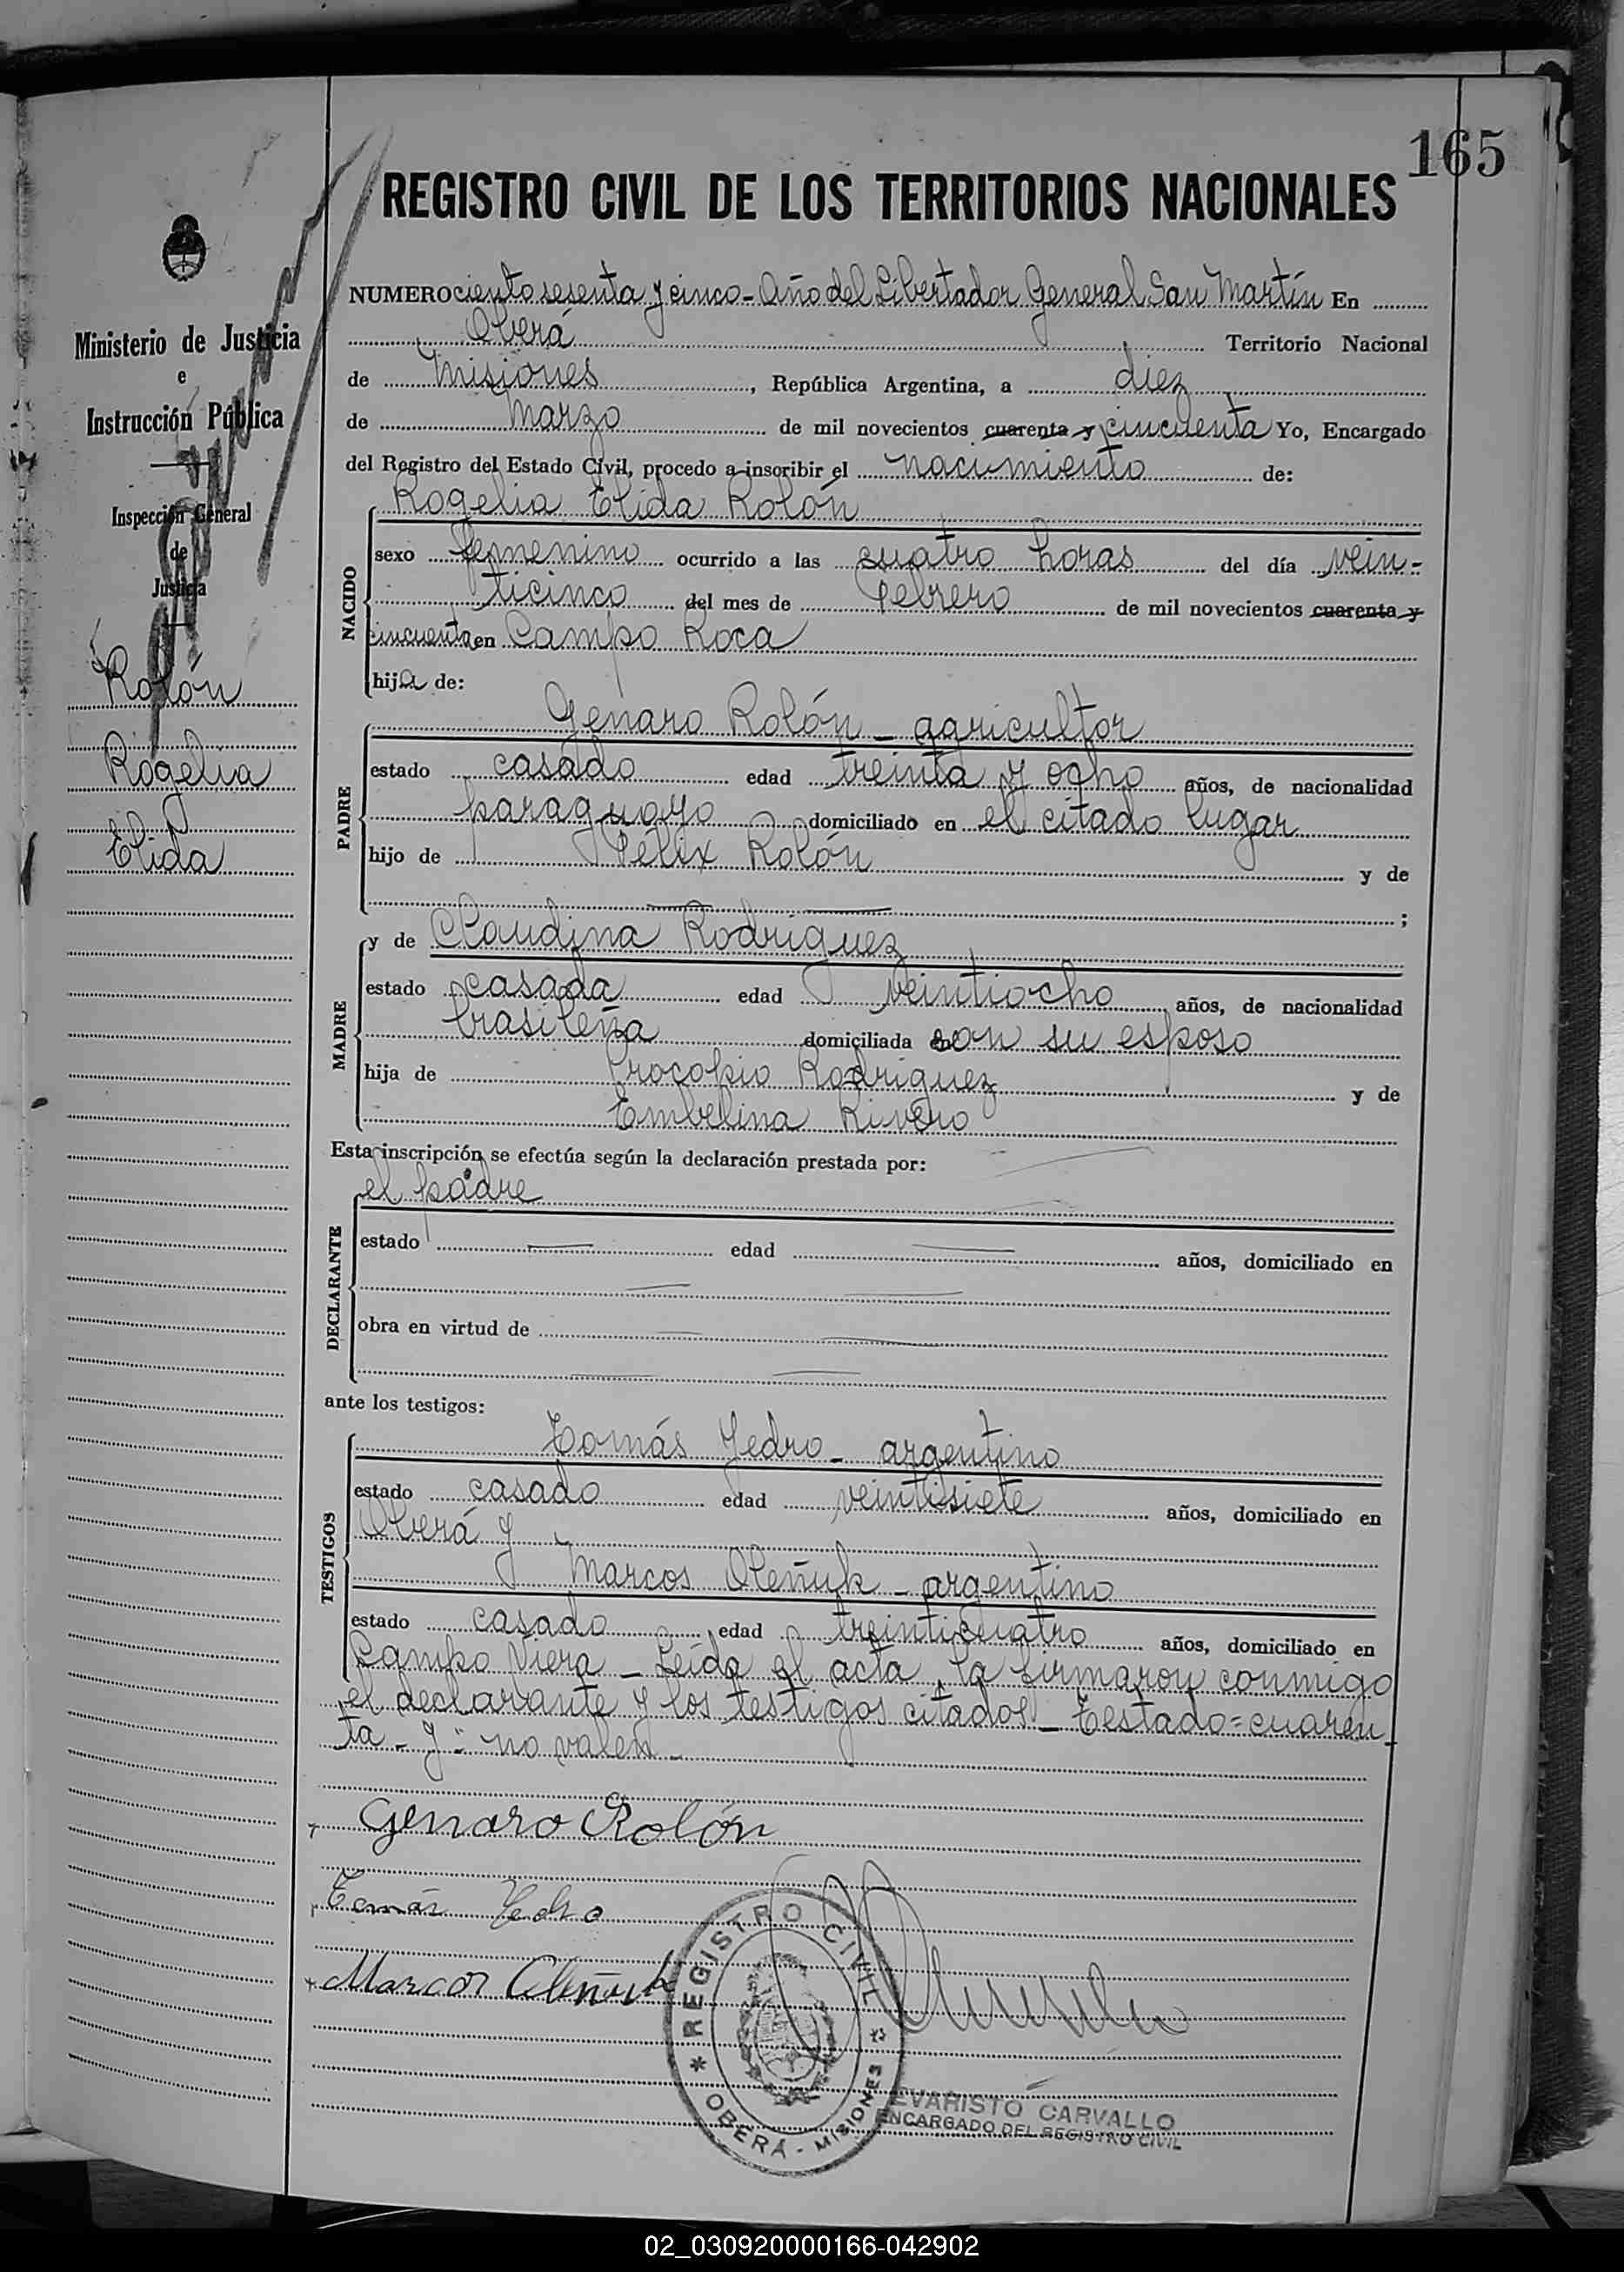 165
REGISTRO CIVIL DE LOS TERRITORIOS NACIONALES
Ministerio de Justicia
e
Instrucción Pública
Inspección General
de
Justicia
Rolón
Rogelia
Elida
NUMERO ciento sesenta y cinco - Año del Libertador General San Martín En
Oberá Territorio Nacional
de Misiones, República Argentina, a diez
de Marzo de mil novecientos cuarenta y cincuenta Yo, Encargado
del Registro del Estado Civil, procedo a inscribir el nacimiento de:
Rogelia Elida Rolón
NACIDO
sexo femenino ocurrido a las cuatro horas del día vein-
ticinco del mes de Febrero de mil novecientos cuarenta y
cincuenta en Campo Roca
hija de:
Genaro Rolón - agricultor
PADRE
estado casado edad treinta y ocho años, de nacionalidad
paraguayo domiciliado en el citado lugar
hijo de Félix Rolón y de
;
MADRE
y de Claudina Rodriguez
estado casada edad veintiocho años, de nacionalidad
brasileña domiciliada con su esposo
hija de Procopio Rodriguez y de
Embelina Rivero
Esta inscripción se efectúa según la declaración prestada por:
el padre
DECLARANTE
estado edad años, domiciliado en
obra en virtud de
ante los testigos:
TESTIGOS
Tomás Yedro - argentino
estado casado edad veintisiete años, domiciliado en
Oberá y
Marcos Oleñuk - argentino
estado casado edad treinticuatro años, domiciliado en
Campo Viera - Leída el acta, la firmaron conmigo
el declarante y los testigos citados - Testado = cuaren-
ta - y - no valen -
Genaro Rolón
Tomás Yedro
Marcos Oleñuk
REGISTRO CIVIL
OBERÁ - MISIONES
EVARISTO CARVALLO
ENCARGADO DEL REGISTRO CIVIL
02_030920000166-042902